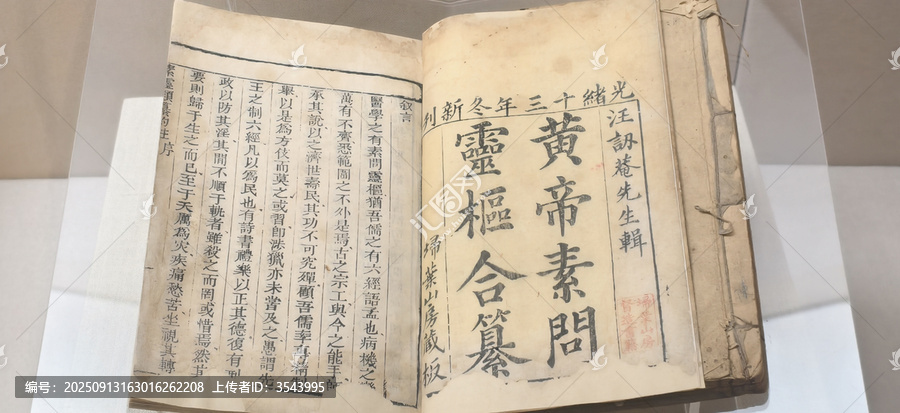 光緒十三年冬新刊
汪訒菴先生輯
黃帝素問
靈樞合纂
掃葉山房藏板
敘言
醫學之有素問靈樞猶吾儒之有六經語孟也病機之
萬有不齊悉範圍之不外是焉古之宗工與今之能手
承其說以之濟世壽民其功不可究殫顧吾儒
率以是為方伎而莫之或習即涉獵亦未嘗及之愚謂
王之制六經凡以為民也有詩書禮樂以正其德復有刑
政以防其淫其間不順于軌者雖殺之而罔或惜焉然其
要則歸于生之而已至于夭厲為灾疾痛愁苦坐視其轉
序
编号：20250913163016262208 上传者ID：3543995